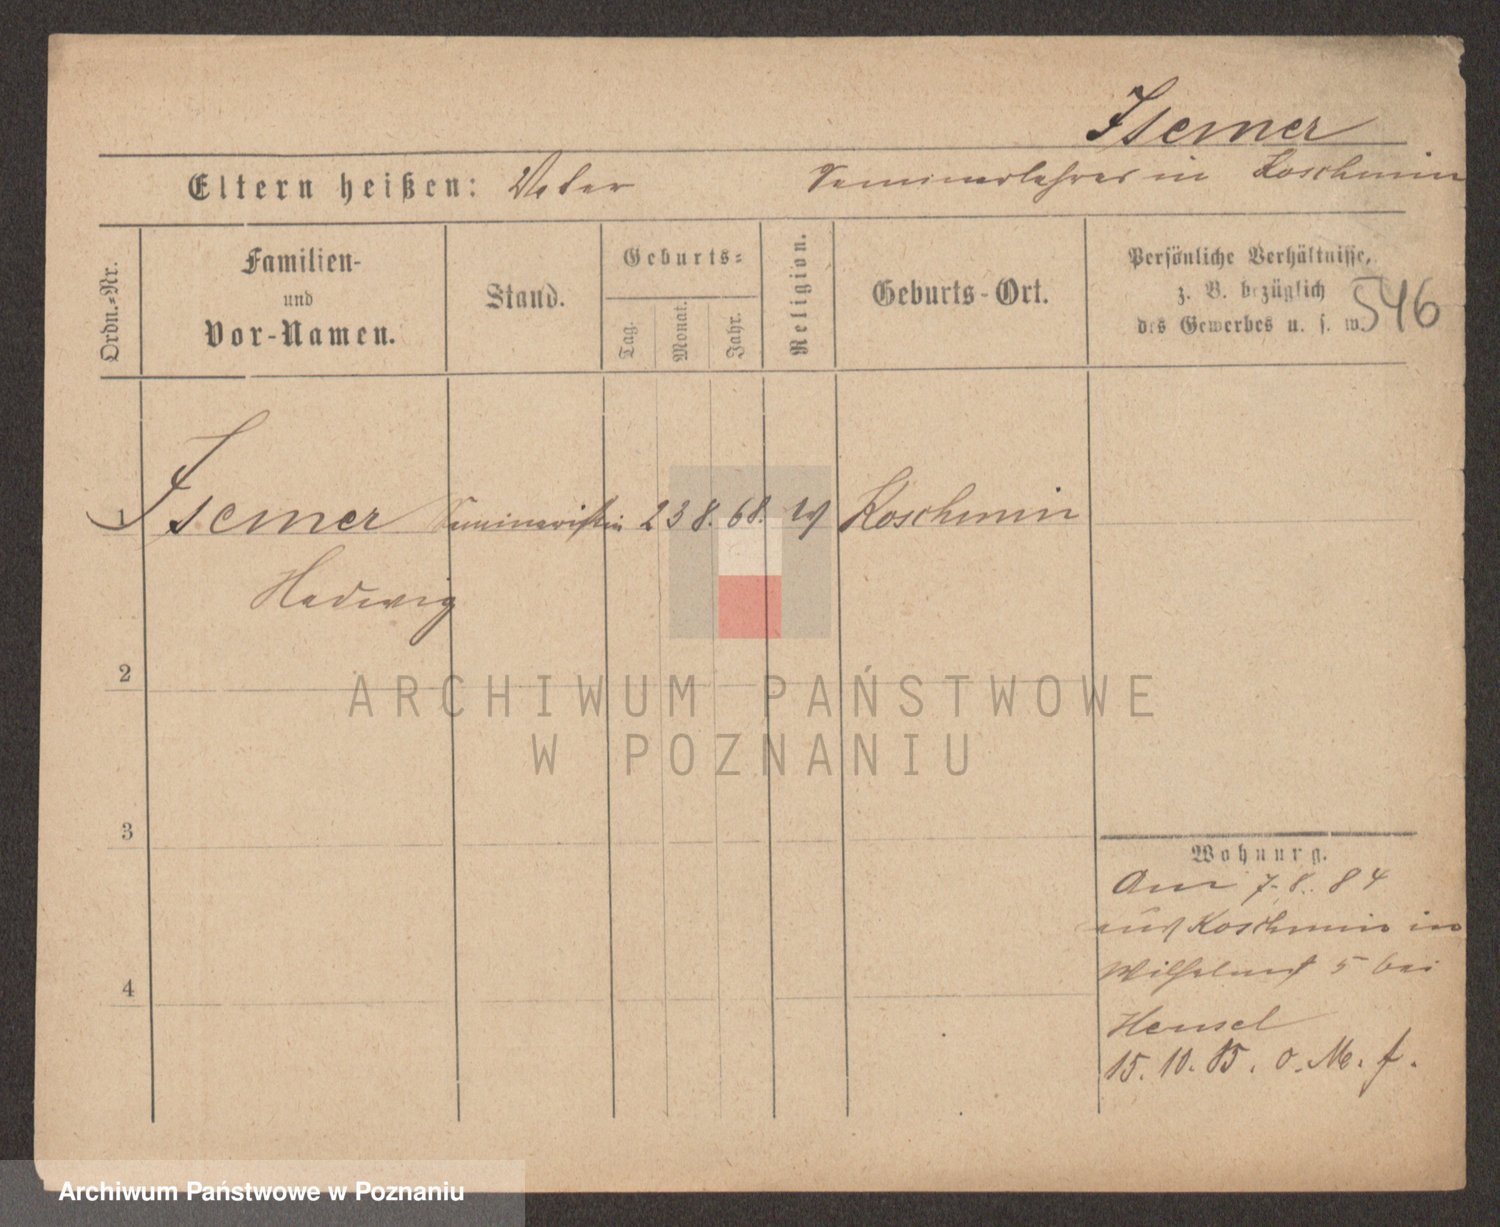 Isemer
Eltern heißen: Vater Seminarlehrer in Koschmin
Ordn.-Nr.
Familien-
und
Vor-Namen.
Stand.
Geburts-
Tag.
Monat.
Jahr.
Religion.
Geburts-Ort.
Persönliche Verhältnisse,
z. B. bezüglich
des Gewerbes u. s. w.
546
1 Isemer Seminaristin 23 8. 68. ev Koschmin
Hedwig
2
ARCHIWUM PAŃSTWOWE
W POZNANIU
3
4
Wohnung.
Am 7. 8. 84
aus Koschmin in
Wilhelmst 5 bei
Hensel
15. 10. 85. o. M. f.
Archiwum Państwowe w Poznaniu